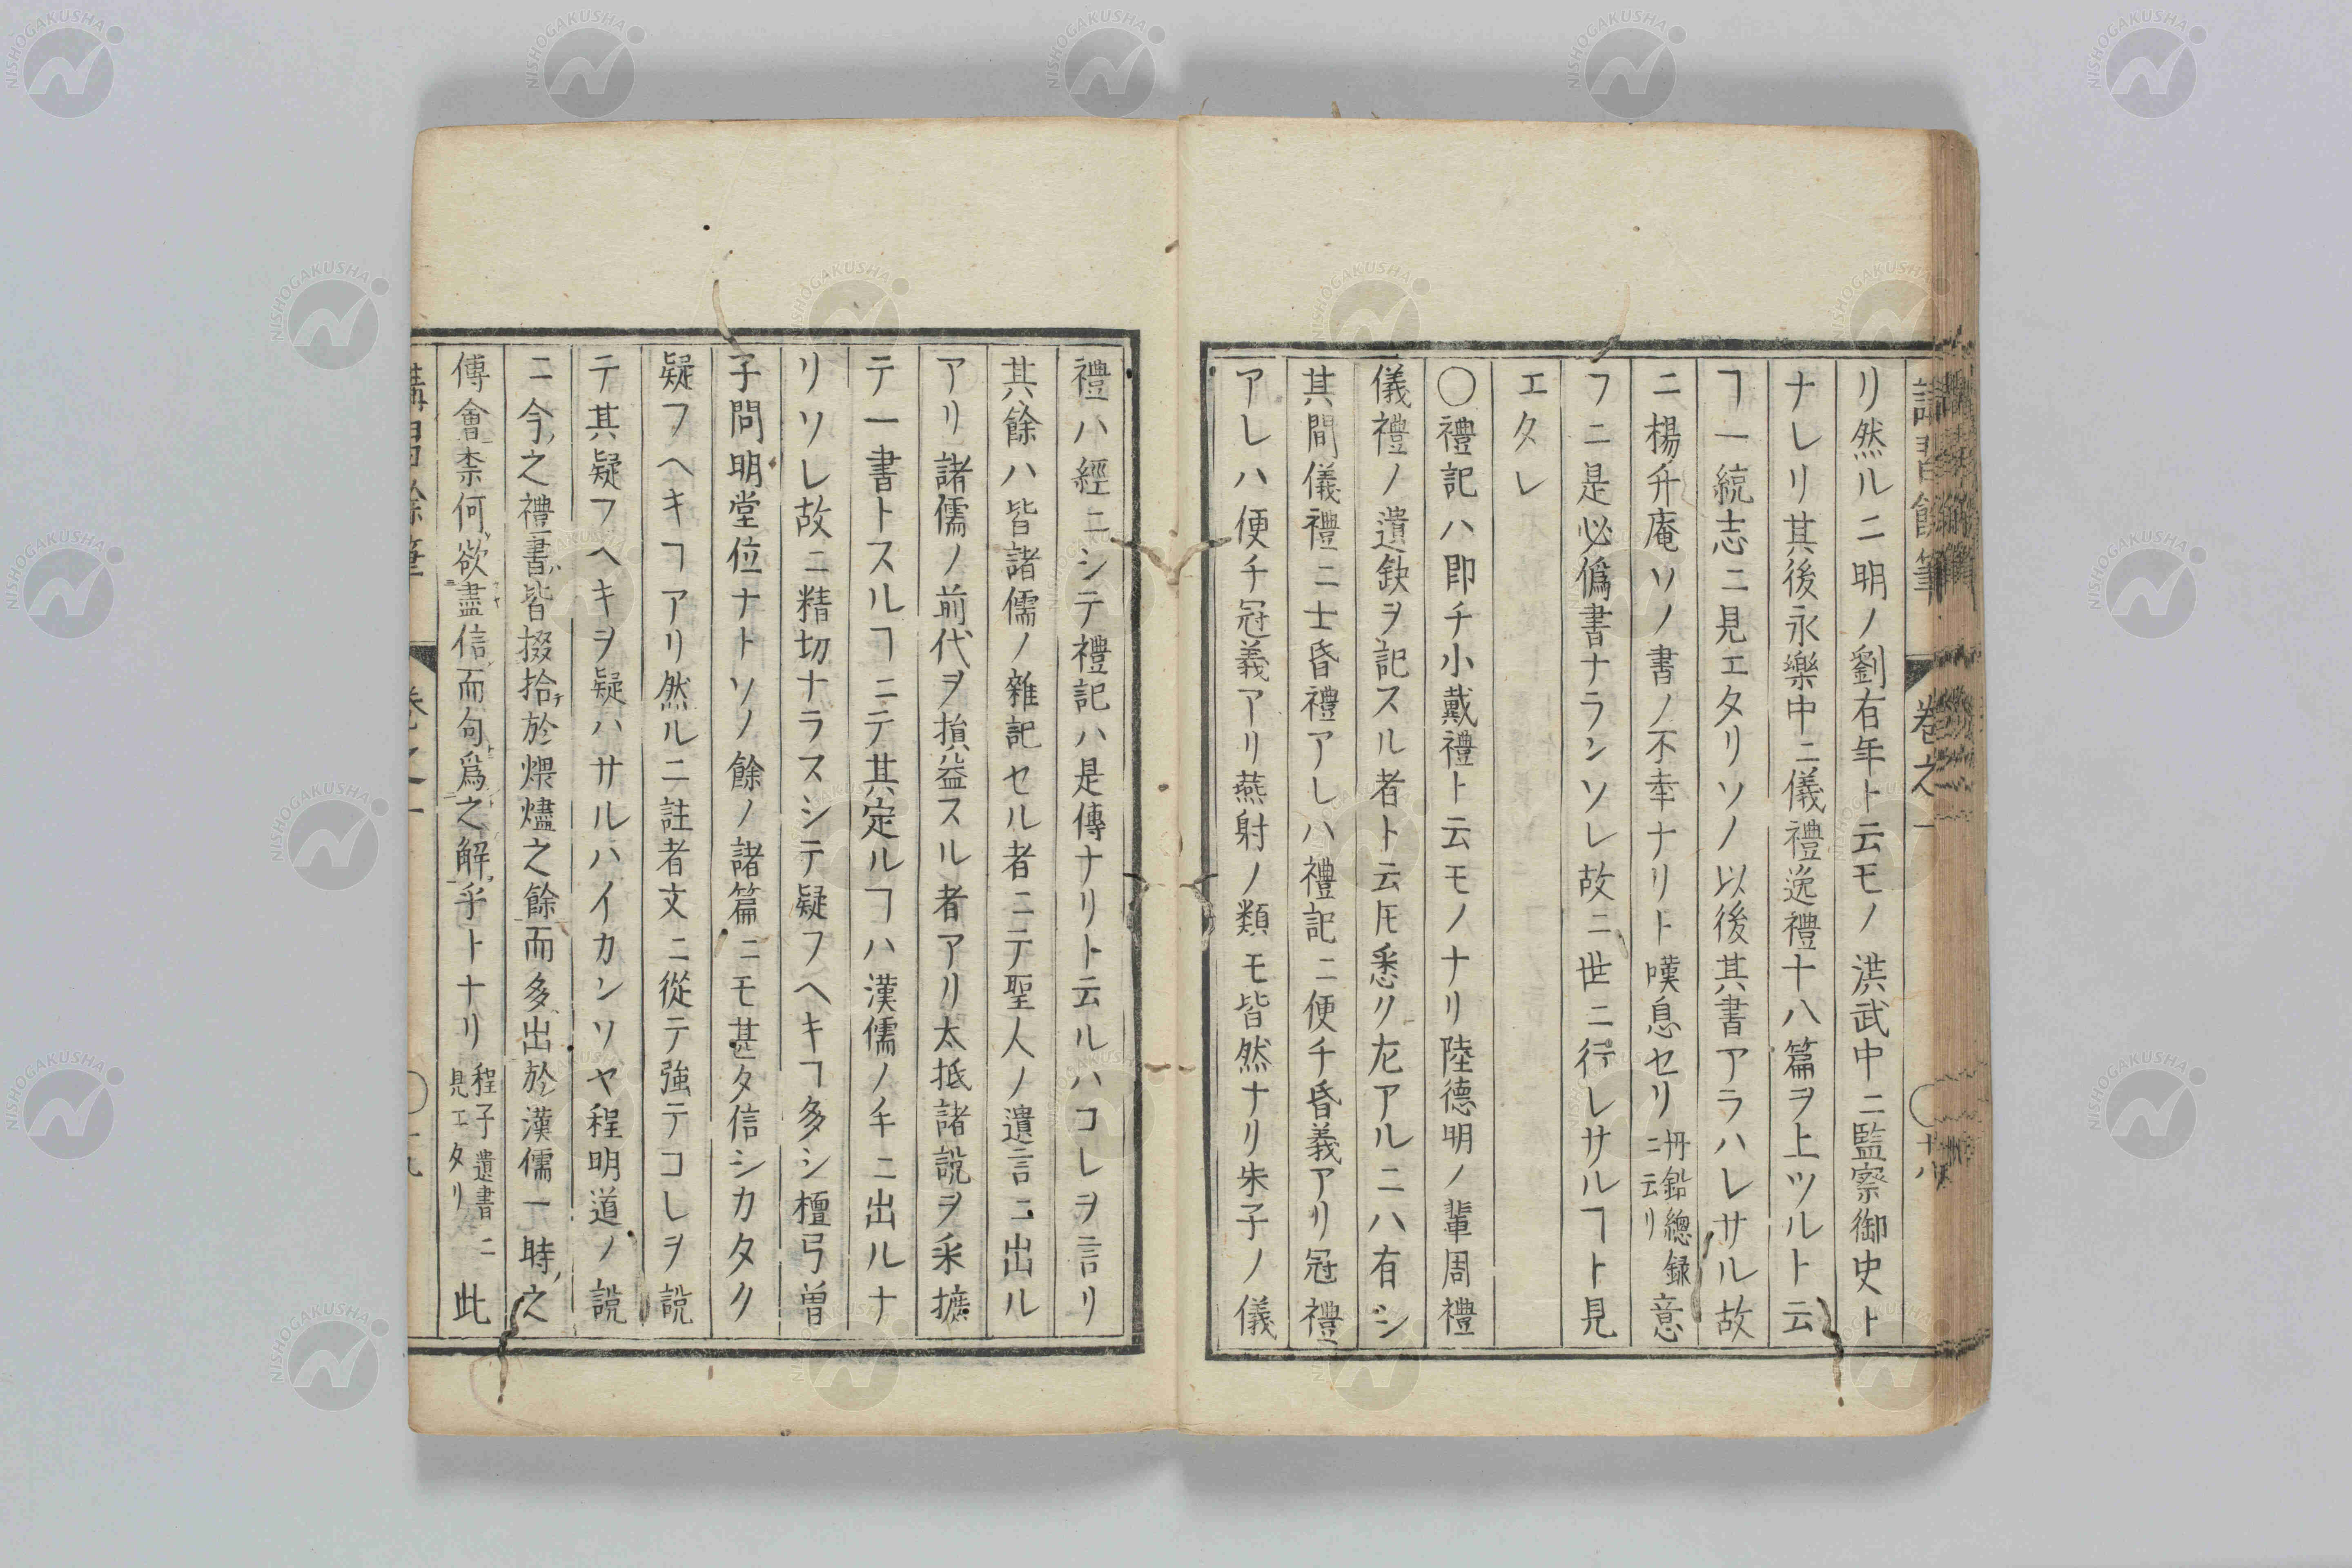 講習餘筆 卷之一 ○十八
リ然ルニ明ノ劉有年ト云モノ洪武中ニ監察御史ト
ナレリ其後永樂中ニ儀禮逸禮十八篇ヲ上ツルト云
ヿ一統志ニ見エタリソノ以後其書アラハレサル故
ニ楊升庵ソノ書ノ不幸ナリト嘆息セリ丹鉛總録ニ云リ意
フニ是必僞書ナランソレ故ニ世ニ行レサルヿト見
エタレ
○禮記ハ即チ小戴禮ト云モノナリ陸德明ノ輩周禮
儀禮ノ遺缺ヲ記スル者ト云𪜈悉ク尤アルニハ有シ
其間儀禮ニ士昏禮アレハ禮記ニ便チ昏義アリ冠禮
アレハ便チ冠義アリ燕射ノ類モ皆然ナリ朱子ノ儀
禮ハ經ニシテ禮記ハ是傳ナリト云ルハコレヲ言リ
其餘ハ皆諸儒ノ雜記セル者ニテ聖人ノ遺言ニ出ル
アリ諸儒ノ前代ヲ損益スル者アリ太抵諸說ヲ采摭
テ一書トスルヿニテ其定ルヿハ漢儒ノ手ニ出ルナ
リソレ故ニ精切ナラスシテ疑フヘキヿ多シ檀弓曽
子問明堂位ナトソノ餘ノ諸篇ニモ甚タ信シカタク
疑フヘキヿアリ然ルニ註者文ニ從テ強テコレヲ說
テ其疑フヘキヲ疑ハサルハイカンソヤ程明道ノ說
ニ今之禮書皆掇拾於煨燼之餘而多出於漢儒一時之
傅會柰何欲盡信而句爲之解乎トナリ程子遺書ニ見エタリ此
講習餘筆 卷之一 ○十九
NISHOGAKUSHA